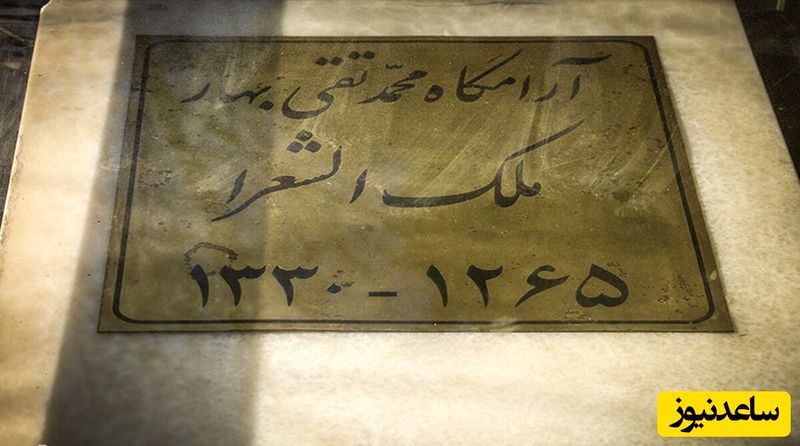 آرامگاه محمّد تقی بهار
ملک الشعرا
۱۲۶۵ - ۱۳۳۰
ساعدنیوز